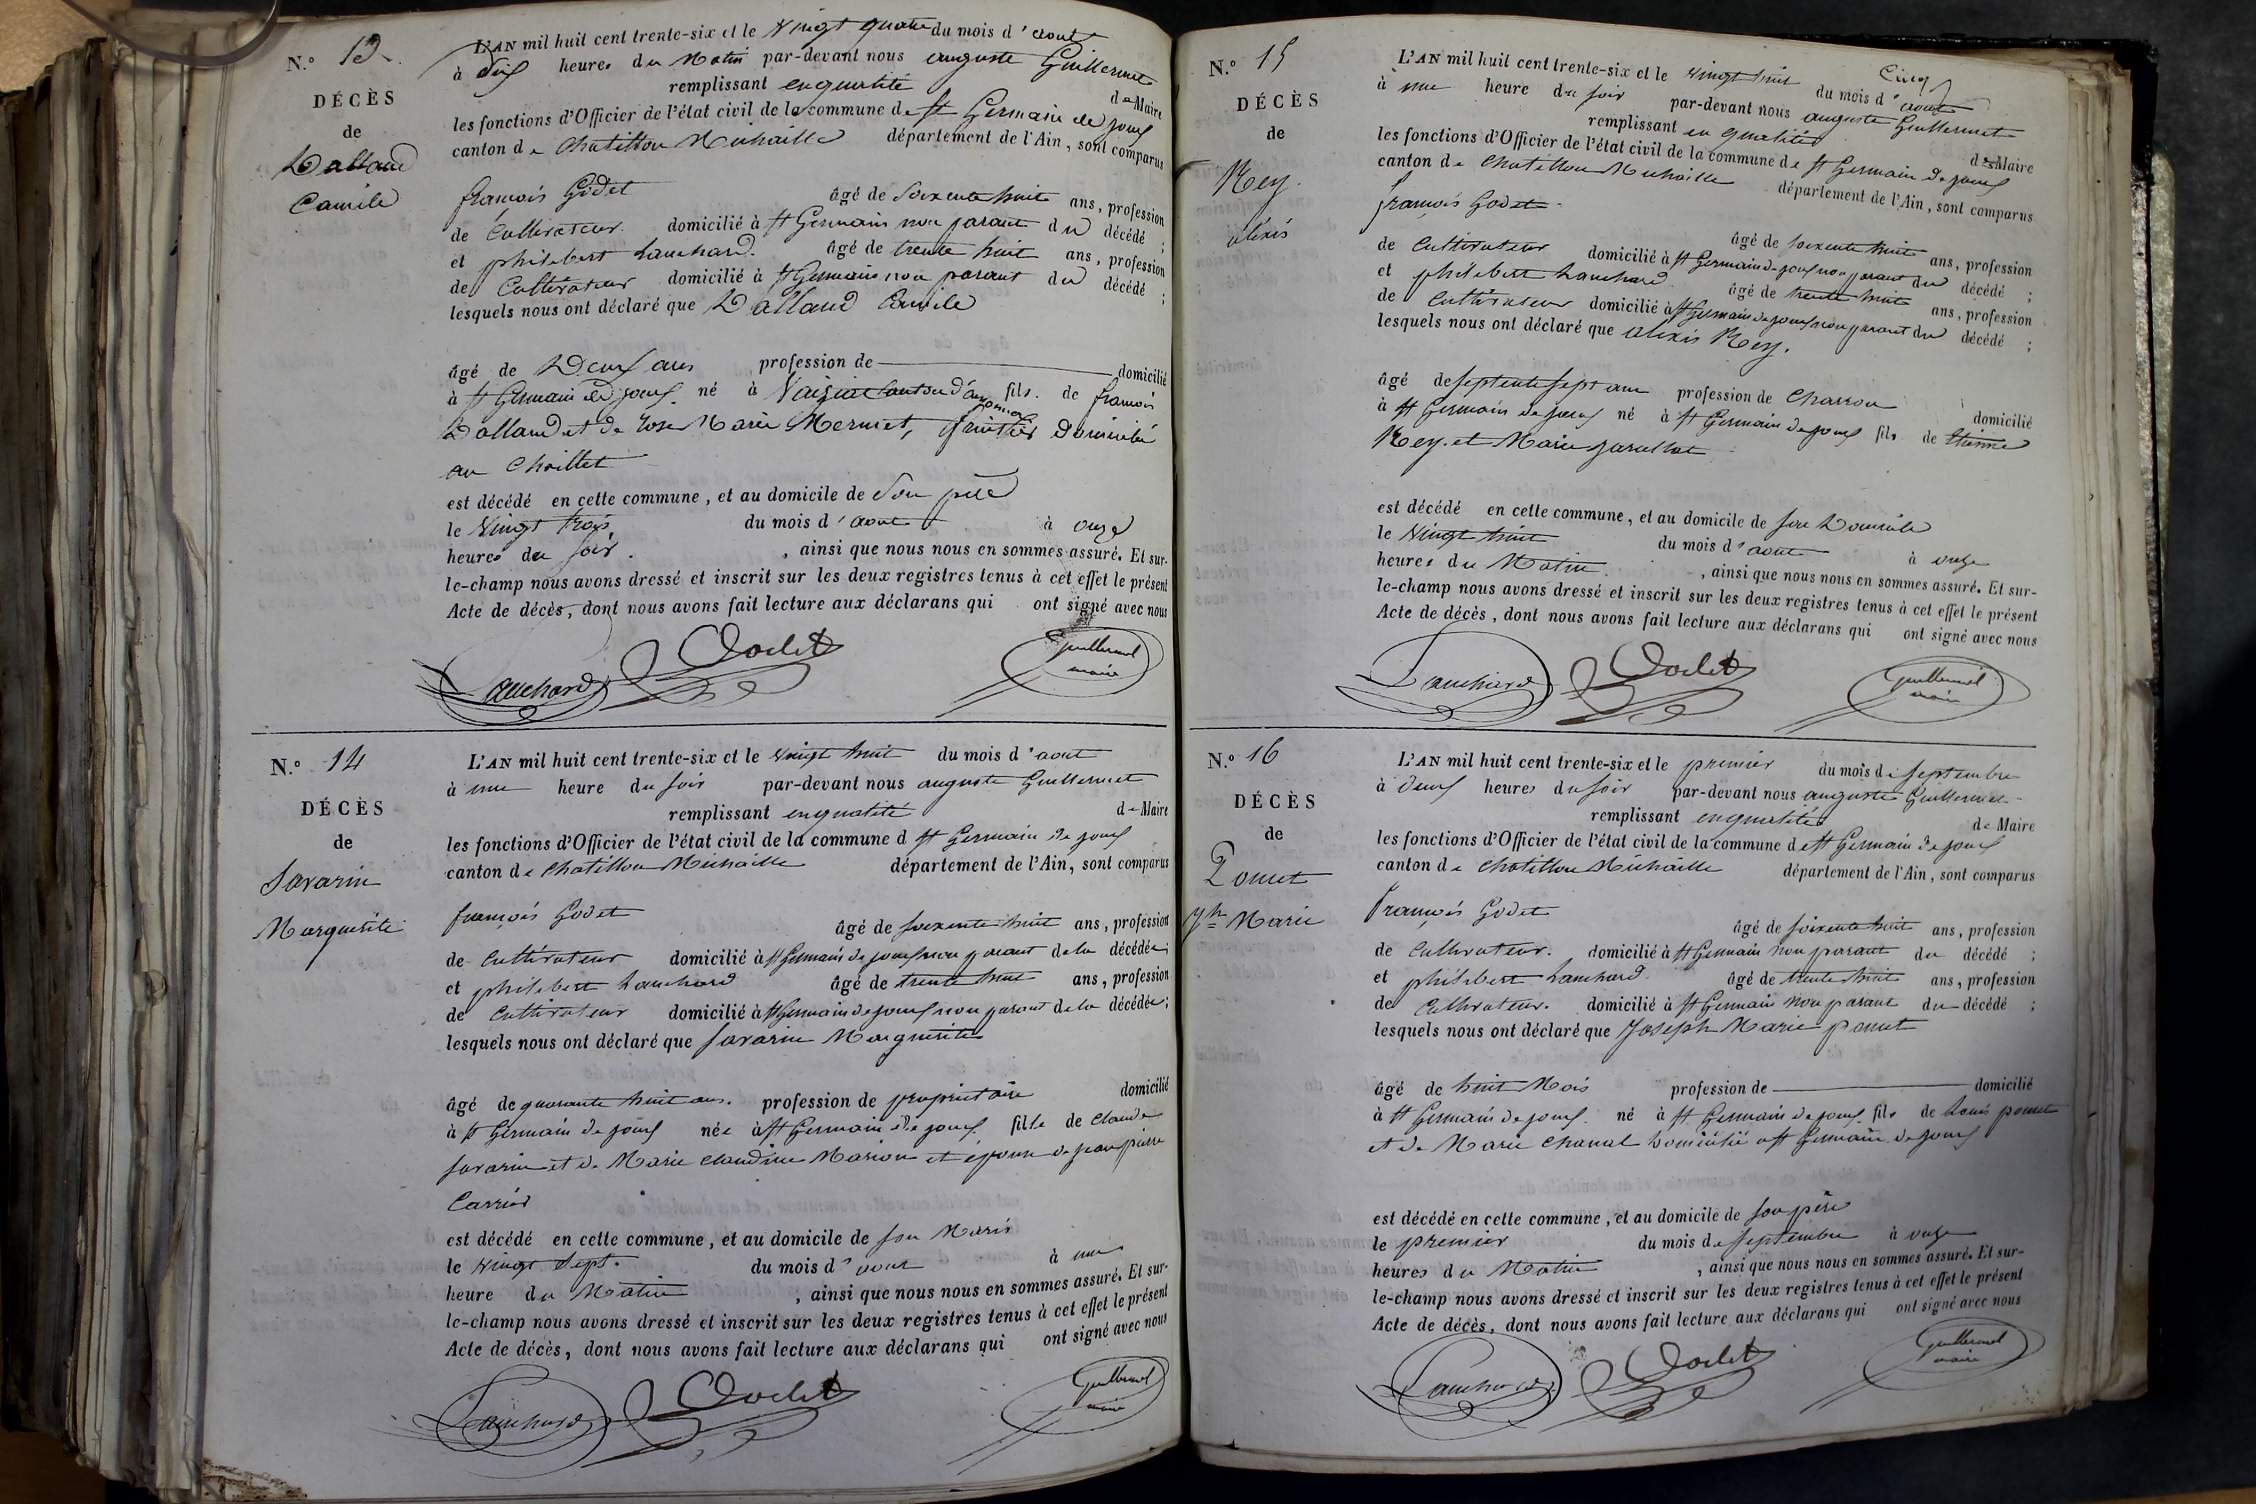 N.° 13
DÉCÈS
de
Dalland
Camile
L'AN mil huit cent trente-six et le Vingt quatre du mois d'aout
à dix heures du Matin par-devant nous auguste Guillermet
remplissant en qualité de Maire
les fonctions d'Officier de l'état civil de la commune de St Germain de joux
canton de Chatillon Michaille département de l'Ain, sont comparus
françois Godet âgé de Soixente huit ans, profession
de Cultivateur domicilié à St Germain non parant du décédé ;
et philibert Lanchard. âgé de trente huit ans, profession
de Cultivateur domicilié à St Germain non parant du décédé ;
lesquels nous ont déclaré que Dalland Camile
âgé de Deux ans profession de domicilié
à St Germain de joux né à canton d' fils de francois
Dalland et de Rose Marie Mermet, Domicilié
au Choillet
est décédé en cette commune, et au domicile de Son père
le Vingt trois du mois d'aout à onze
heures du soir. , ainsi que nous nous en sommes assuré. Et sur-
le-champ nous avons dressé et inscrit sur les deux registres tenus à cet effet le présent
Acte de décès, dont nous avons fait lecture aux déclarans qui ont signé avec nous
Lanchard Godet Guillermet
maire
N.° 14
DÉCÈS
de
Savarin
Marguerite
L'AN mil huit cent trente-six et le vingt huit du mois d'aout
à une heure du soir par-devant nous auguste Guillermet
remplissant en qualité de Maire
les fonctions d'Officier de l'état civil de la commune d St Germain de joux
canton de Chatillon Michaille département de l'Ain, sont comparus
françois Godet âgé de soixente huit ans, profession
de Cultivateur domicilié à St Germain de joux non parant de la décédée ;
et philibert Lanchard âgé de trente huit ans, profession
de Cultivateur domicilié à St Germain de joux non parant de la décédée ;
lesquels nous ont déclaré que Savarin Marguerite
âgé de quarante huit ans. profession de propriétaire domicilié
à St Germain de joux née à St Germain de joux fille de Claude
Savarin et de Marie Claudine Marion et épouse de jean pierre
Carrier
est décédé en cette commune, et au domicile de son Maris
le Vingt Sept. du mois d'aout à une
heure du Matin , ainsi que nous nous en sommes assuré. Et sur-
le-champ nous avons dressé et inscrit sur les deux registres tenus à cet effet le présent
Acte de décès, dont nous avons fait lecture aux déclarans qui ont signé avec nous
Lanchard Godet Guillermet
maire
N.° 15
DÉCÈS
de
Rey.
alexis
L'AN mil huit cent trente-six et le vingt huit du mois d'aout
à une heure du soir par-devant nous auguste Guillermet
remplissant en qualité de Maire
les fonctions d'Officier de l'état civil de la commune de St Germain de joux
canton de Chatillon Michaille département de l'Ain, sont comparus
françois Godet âgé de soixente huit ans, profession
de Cultivateur domicilié à St Germain de joux non parant du décédé ;
et philibert Lanchard âgé de trente huit ans, profession
de Cultivateur domicilié à St Germain de joux non parant du décédé ;
lesquels nous ont déclaré que alexis Rey.
âgé de septente sept ans profession de Charron domicilié
à St Germain de joux né à St Germain de joux fils de Etienne
Rey. et Marie
est décédé en cette commune, et au domicile de son Domicile
le Vingt huit du mois d'aout à onze
heures du Matin. , ainsi que nous nous en sommes assuré. Et sur-
le-champ nous avons dressé et inscrit sur les deux registres tenus à cet effet le présent
Acte de décès, dont nous avons fait lecture aux déclarans qui ont signé avec nous
Lanchard Godet Guillermet
maire
N.° 16
DÉCÈS
de
Ponet
Jh Marie
L'AN mil huit cent trente-six et le premier du mois de septembre
à deux heures du soir par-devant nous auguste Guillermet
remplissant en qualité de Maire
les fonctions d'Officier de l'état civil de la commune de St Germain de joux
canton de Chatillon Michaille département de l'Ain, sont comparus
françois Godet âgé de soixente huit ans, profession
de Cultivateur. domicilié à St Germain non parant du décédé ;
et philibert Lanchard âgé de trente huit ans, profession
de Cultivateur. domicilié à St Germain non parant du décédé ;
lesquels nous ont déclaré que Joseph Marie ponet
âgé de huit Mois profession de domicilié
à St Germain de joux né à St Germain de joux fils de Louis ponet
et de Marie Chanal Domicilié a St Germain de joux
est décédé en cette commune, et au domicile de son père
le premier du mois de septembre à onze
heures du Matin , ainsi que nous nous en sommes assuré. Et sur-
le-champ nous avons dressé et inscrit sur les deux registres tenus à cet effet le présent
Acte de décès, dont nous avons fait lecture aux déclarans qui ont signé avec nous
Lanchard Godet Guillermet
maire